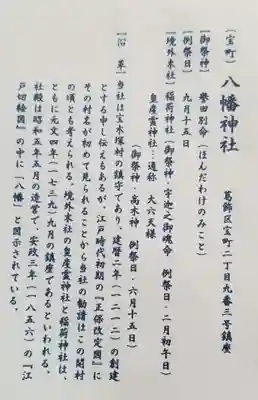 (宝町) 八幡神社　葛飾区宝町二丁目九番三号鎮座
[御祭神] 誉田別命(ほんだわけのみこと)
[例祭日] 九月十五日
[境外末社] 稲荷神社(御祭神・宇迦之御魂命　例祭日・二月初午日)
皇産霊神社・通称　大六天様
(御祭神・高木神　例祭日・六月十五日)
[沿　革] 当社は宝木塚村の鎮守であり、建暦二年(一二一二)の創建
とする申し伝えもあるが、江戸時代初期の『正保改定図』に
その村名が初めて見られることから当社の勧請はこの開村
の頃とも考えられる。境外末社の皇産霊神社と稲荷神社は、
ともに元文四年(一七三九)九月の鎮座であるといわれる。
社殿は昭和五年五月の造営で、安政三年(一八五六)の『江
戸切絵図』の中に「八幡」と図示されている。